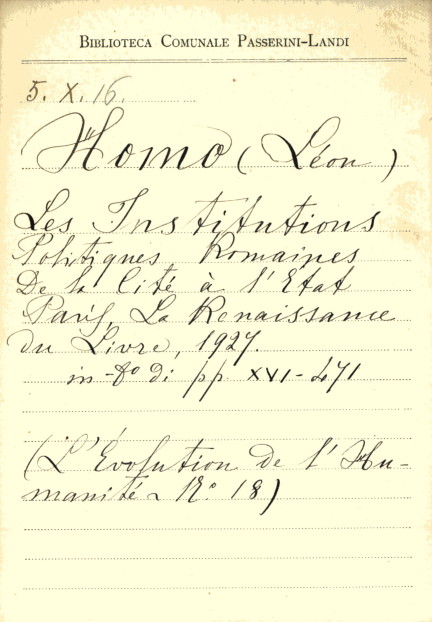 BIBLIOTECA COMUNALE PASSERINI-LANDI
5. X. 16.
Homo (Léon)
Les Institutions
Politiques Romaines
De la Cité à l'Etat
Paris, La Renaissance
du Livre, 1927.
in-8º di pp. XVI-471
(L'Évolution de l'Hu-
manité - Nº 18)